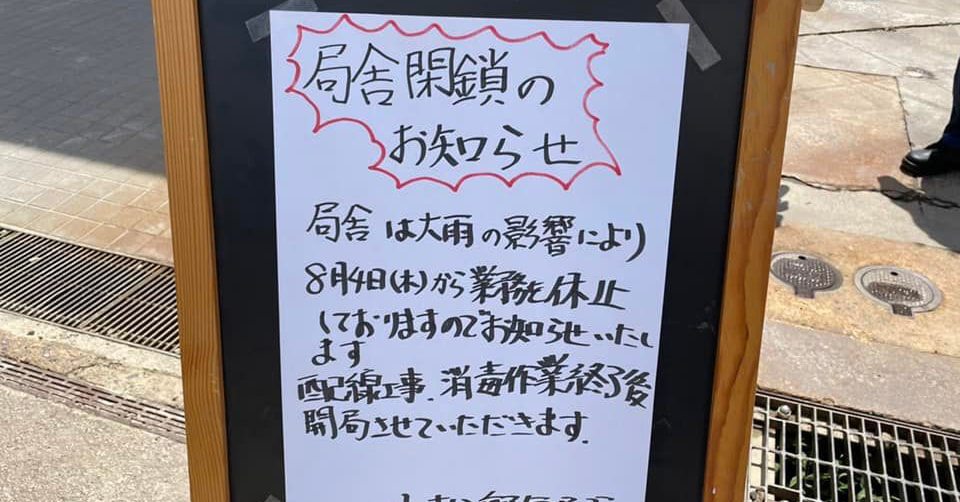 局舎閉鎖の
お知らせ
局舎は大雨の影響により
8月4日(木)から業務を休止
しておりますのでお知らせいたし
ます
配線工事.消毒作業終了後
開局させていただきます.